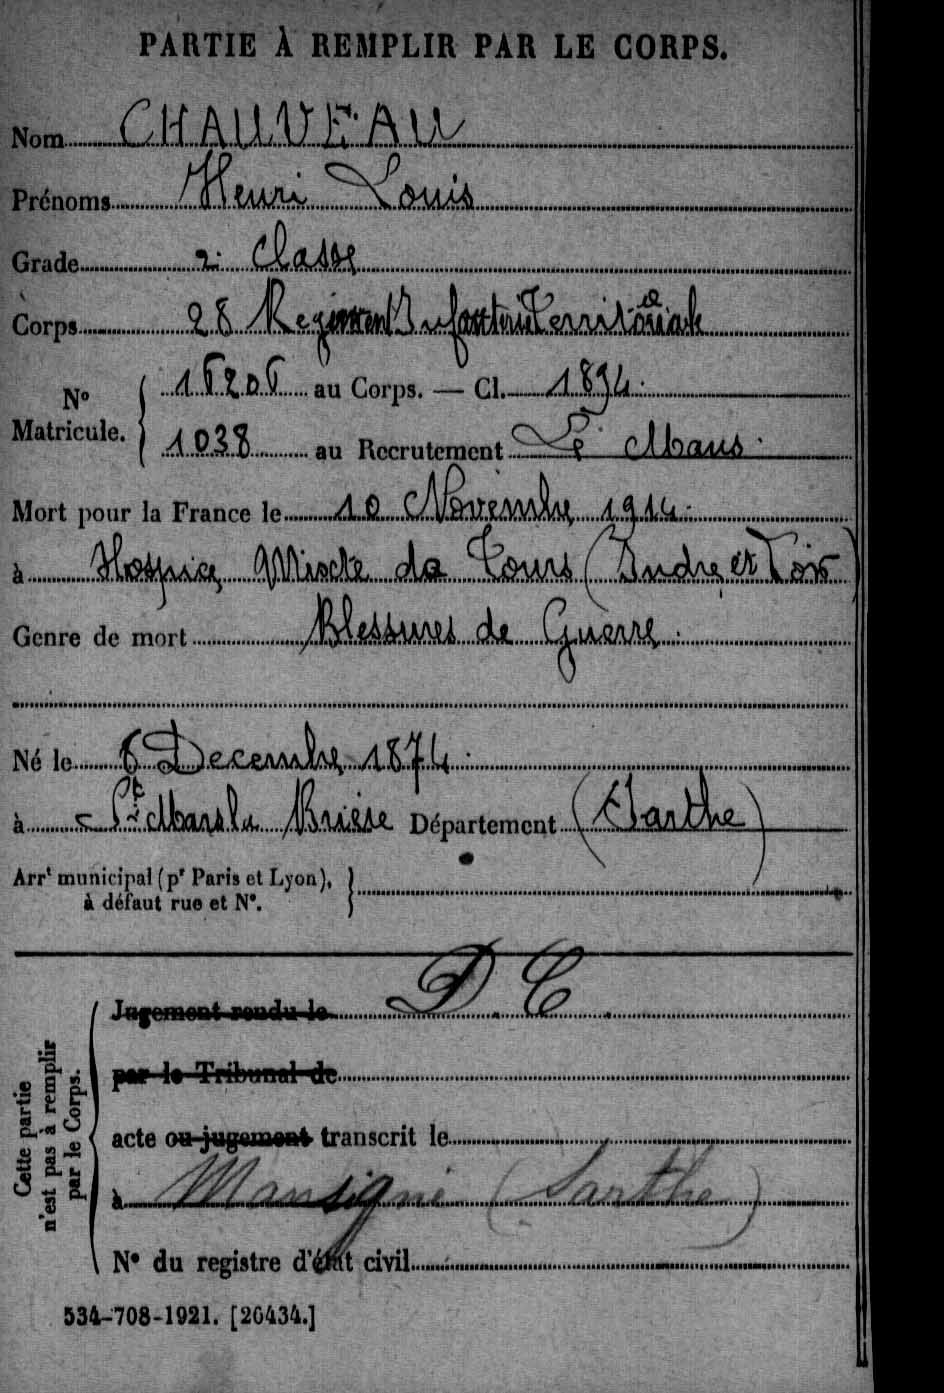 PARTIE À REMPLIR PAR LE CORPS.
Nom CHAUVEAU
Prénoms Henri Louis
Grade 2e classe
Corps 28 Regiment Infanterie Territoriale
No Matricule. 16206 au Corps. — Cl. 1894.
1038 au Recrutement Le Mans.
Mort pour la France le 10 Novembre 1914.
à Hospice Mixte de Tours (Indre et Loir)
Genre de mort Blessures de Guerre.
Né le 6 Decembre 1874.
à St Mars la Brière Département (Sarthe)
Arrt municipal (pr Paris et Lyon),
à défaut rue et No.
Cette partie n'est pas à remplir par le Corps.
Jugement rendu le D.C.
par le Tribunal de
acte ou jugement transcrit le
à Mansigné (Sarthe)
No du registre d'état civil
534-708-1921. [26434.]